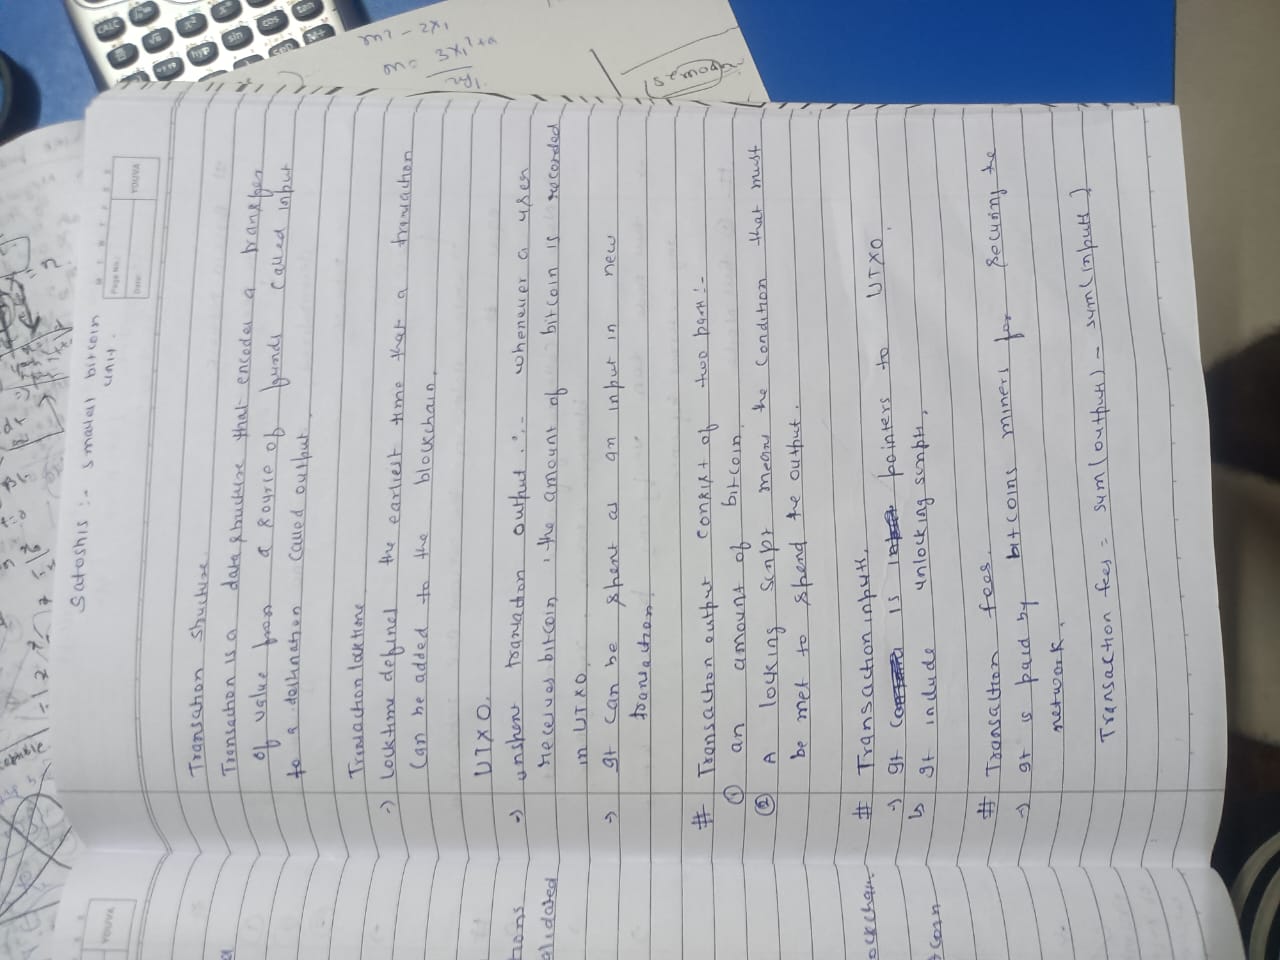 Satoshis :- smallest bitcoin
unit.
Page No.:
Date:
YOUVA
YOUVA
Transaction structure
Transaction is a data structure that encodes a transfer
of value from a source of funds called input
to a destination called output.
Transaction locktime
-> Locktime defines the earliest time that a transaction
can be added to the blockchain.
UTXO.
-> unspent transaction output :- whenever a user
receives bitcoin, the amount of bitcoin is recorded
in UTXO.
-> It can be spent as an input in new
transaction.
# Transaction output consist of two part :-
① an amount of bitcoin.
② A locking script means the condition that must
be met to spend the output.
# Transaction inputs.
-> It is pointers to UTXO.
↳ It include unlocking scripts.
# Transaction fees.
-> It is paid by bitcoins miners for securing the
network.
Transaction fees = sum(outputs) - sum(inputs)
tions
alidated
ockchain
coin